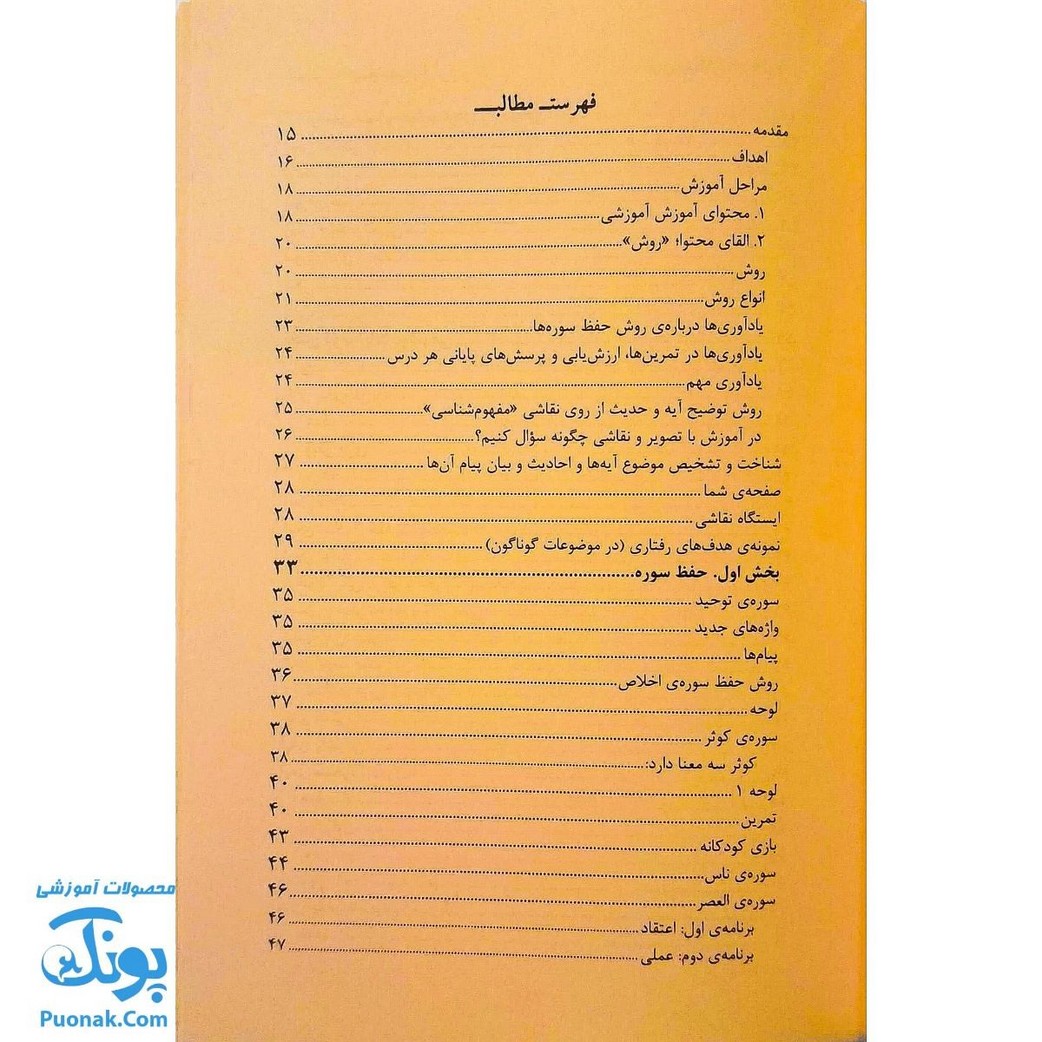 فهرست مطالب
مقدمه ... ۱۵
اهداف ... ۱۶
مراحل آموزش ... ۱۸
۱. محتوای آموزش آموزشی ... ۱۸
۲. القای محتوا؛ «روش» ... ۲۰
روش ... ۲۰
انواع روش ... ۲۱
یادآوری‌ها درباره‌ی روش حفظ سوره‌ها ... ۲۳
یادآوری‌ها در تمرین‌ها، ارزش‌یابی و پرسش‌های پایانی هر درس ... ۲۴
یادآوری مهم ... ۲۴
روش توضیح آیه و حدیث از روی نقاشی «مفهوم‌شناسی» ... ۲۵
در آموزش با تصویر و نقاشی چگونه سؤال کنیم؟ ... ۲۶
شناخت و تشخیص موضوع آیه‌ها و احادیث و بیان پیام آن‌ها ... ۲۷
صفحه‌ی شما ... ۲۸
ایستگاه نقاشی ... ۲۸
نمونه‌ی هدف‌های رفتاری (در موضوعات گوناگون) ... ۲۹
بخش اول. حفظ سوره ... ۳۳
سوره‌ی توحید ... ۳۵
واژه‌های جدید ... ۳۵
پیام‌ها ... ۳۵
روش حفظ سوره‌ی اخلاص ... ۳۶
لوحه ... ۳۷
سوره‌ی کوثر ... ۳۸
کوثر سه معنا دارد: ... ۳۸
لوحه ۱ ... ۴۰
تمرین ... ۴۰
بازی کودکانه ... ۴۳
سوره‌ی ناس ... ۴۴
سوره‌ی العصر ... ۴۶
برنامه‌ی اول: اعتقاد ... ۴۶
برنامه‌ی دوم: عملی ... ۴۷
محصولات آموزشی
پونک
Puonak.Com